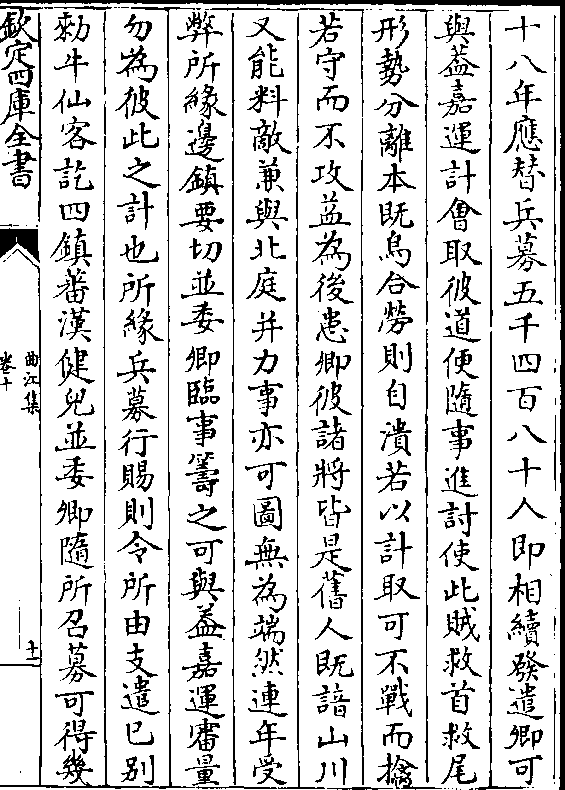 十八年應替兵募五千四百八十人即相續發遣卿可
與葢嘉運計㑹取彼道便隨事進討使此賊救首救尾
形勢分離本既烏合勞則自潰若以計取可不戰而擒
若守而不攻益為後患卿彼諸將皆是舊人既諳山川
又能料敵兼與北庭并力事亦可圖無為端然連年受
弊所緣邊鎮要切並委卿臨事籌之可與葢嘉運審量
勿為彼此之計也所緣兵募行賜則令所由支遣已别
勅牛仙客訖四鎮蕃漢健兒並委卿隨所召募可得幾
欽定四庫全書
曲江集
卷十
十一